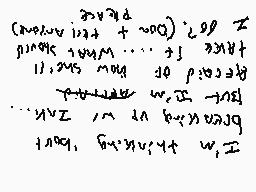 I'm thinking 'bout
breaking up w/ Ink...
but I'm
afraid of how she'll
take it .... what should
I do?. (Don't tell anyone)
please